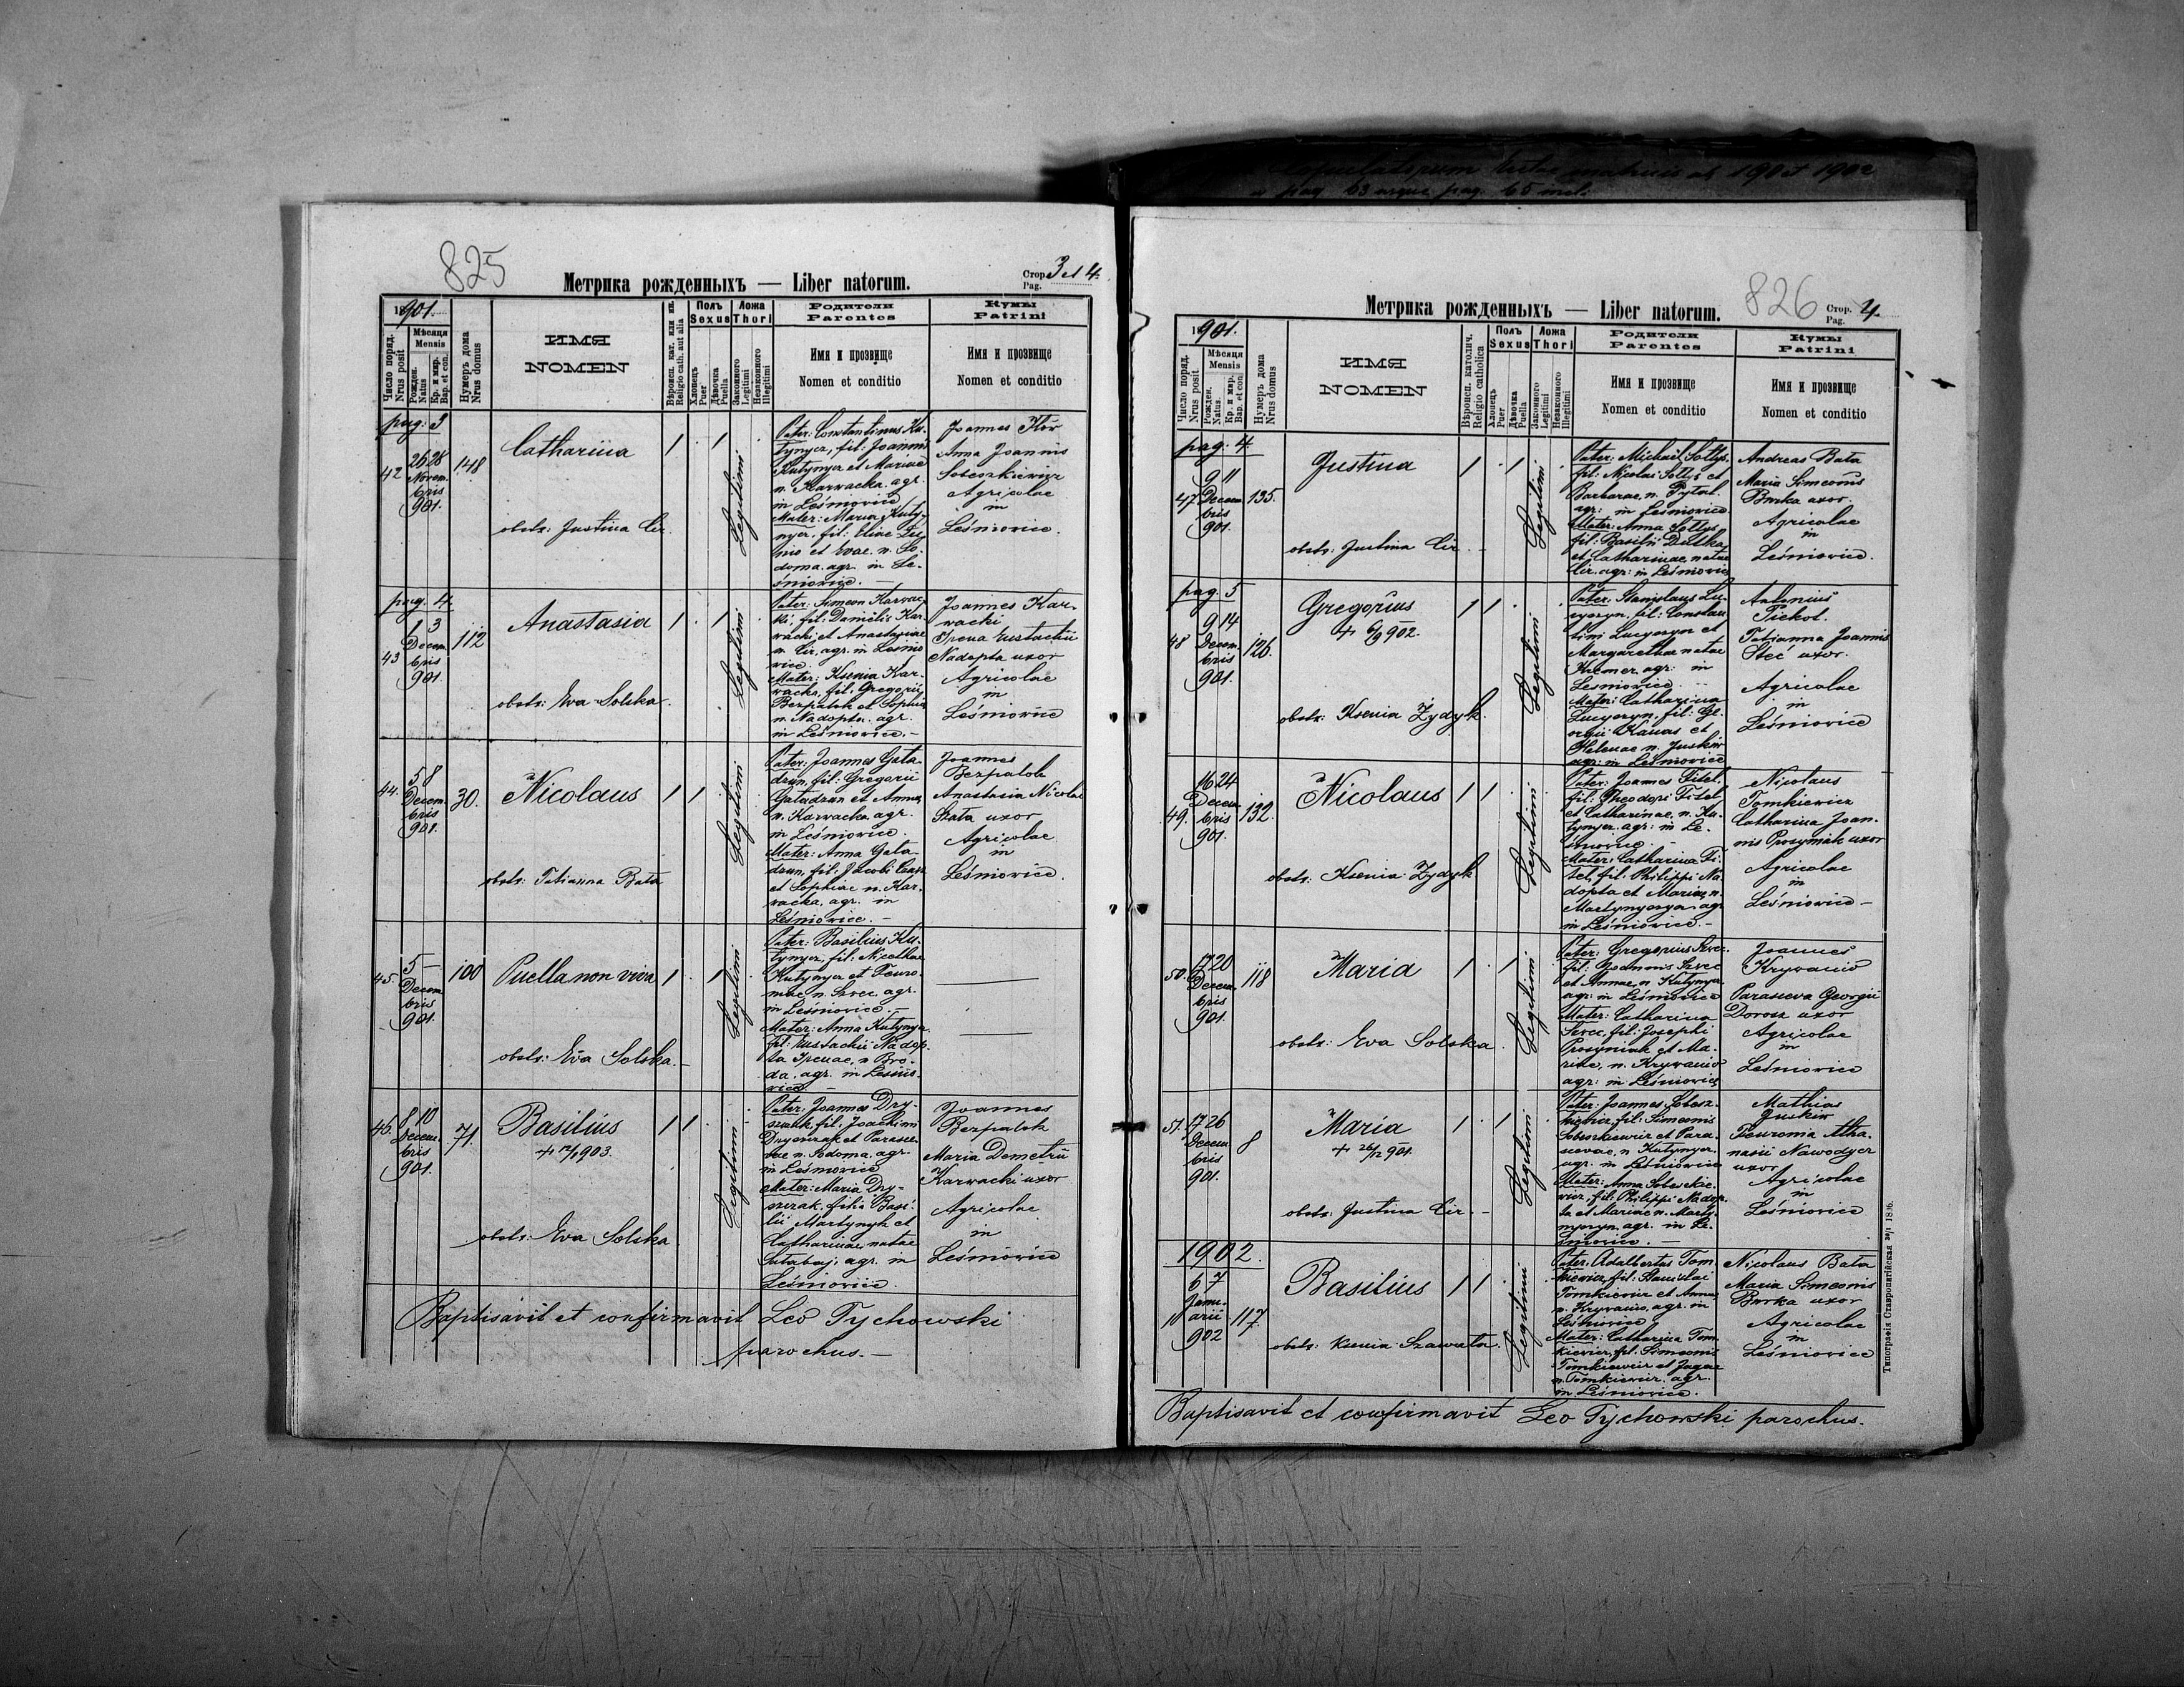 825
Стор. 3 et 4.
Pag.
Метрика рожденныхъ — Liber natorum.
1901.
Мѣсяця
Mensis
Число поряд.
Nrus posit
Рожден.
Natus
Кр. и мир.
Bap. et con.
Нумеръ дома
Nrus domus
ИМЯ
NOMEN
Вѣроисп. кат. или ин.
Religio cath. aut alia
Полъ
Sexus
Хлопець
Puer
Дѣвочка
Puella
Ложа
Thori
Законного
Legitimi
Незаконного
Illegitimi
Родители
Parentes
Имя и прозвище
Nomen et conditio
Кумы
Patrini
Имя и прозвище
Nomen et conditio
pag. 3
42
26 28
Novem.
bris
901.
148
Catharina
obstr: Justina Cir
1 . 1
Legitimi
Pater: Constantinus Ku-
tynycz, fil: Joannis
Kutynycz et Mariae
n. Karwacka. agr.
in Leśniovice
Mater: Maria Kuty-
nycz, fil: Eliae
et Evae n. So-
doma. agr. in Le-
śniovice. —
Joannes Flor
Anna Joannis
Sobeszkiewicz
Agricolae
in
Leśniovice.
pag. 4
43
1 3
Decem.
bris
901
112
Anastasia
obstr: Eva Solska
1 . 1
Legitimi
Pater: Simeon Karwac-
ki, fil: Danielis Kar-
wacki et Anastasiae
n. Cir, agr. in Leśnio
vice.
Mater: Ksenia Kar-
wacka, fil: Gregorii
Bezpalok et Sophiae
n. Nadopta. agr.
in Leśniovice. —
Joannes Kar-
wacki
Irena Eustachii
Nadopta uxor
Agricolae
in
Leśniovice
44.
5 8
Decem.
bris
901.
30.
Nicolaus
obstr: Tatianna Bata
1 1
Legitimi
Pater: Joannes Gata-
dzun, fil: Gregorii
Gatadzun et Annae
n. Karwacka agr.
in Leśniovice.
Mater: Anna Gata-
dzun, fil: Jacobi
et Sophiae n. Kar-
wacka, agr. in
Leśniovice. —
Joannes
Bezpalok
Anastasia Nicolai
uxor
Agricolae
in
Leśniovice.
45.
5 —
Decem
bris
901.
100
Puella non viva
obstr: Eva Solska. —
1 . 1
Legitimi
Pater: Basilius Ku-
tynycz, fil: Nicolai
Kutynycz et Feuro-
niae n. Szvec. agr.
in Leśniovice. —
Mater: Anna Kutynycz
fil: Eustachii Nadop-
ta Irenae, n. Bro-
da. agr. in Leśnio-
vice. —
46.
8 10
Decem.
bris
901.
71.
Basilius
obstr: Eva Solska
1 1
Legitimi
Pater: Joannes Dry-
szczak, fil: Joachimi
Dryszczak et Parasce-
vae n. Sodoma, agr.
in Leśniovice
Mater: Maria Dry-
szczak, filia Basi-
lii Martynyk et
Catharinae natae
agr. in
Leśniovice.
Joannes
Bezpalok
Maria Demetrii
Karwacki uxor
Agricolae
in
Leśniovice
Baptisavit et confirmavit Leo Tychowski
parochus. —
usque pag. 65 incl.
826
Стор. 4.
Pag.
Метрика рожденныхъ — Liber natorum.
1901.
Мѣсяця
Mensis
Число поряд.
Nrus posit.
Рожден.
Natus.
Кр. и мир.
Bap. et con.
Нумеръ дома
Nrus domus
ИМЯ
NOMEN
Вѣроисп. католич.
Religio catholica
Полъ
Sexus
Хлопець
Puer
Дѣвочка
Puella
Ложа
Thori
Законного
Legitimi
Незаконного
Illegitimi
Родители
Parentes
Имя и прозвище
Nomen et conditio
Кумы
Patrini
Имя и прозвище
Nomen et conditio
pag. 4
47
9 11
Decem
bris
901.
135.
Justina
obstr: Justina Cir
1 . 1
Legitimi
Pater: Michael Sołtys.
fil: Nicolai Sołtys et
Barbarae, n. Pytel.
agr: in Leśniovice
Mater: Anna Sołtys
fil: Basilii Dutka
et Catharinae, natae
Cir. agr: in Leśniovice
Andreas Bata
Maria Simeonis
Burka uxor.
Agricolae
in
Leśniovice.
pag. 5
48
9 14
Decem.
bris
901.
126.
Gregorius
+ 6/9 902.
obstr: Ksenia Zydyk.
1 1
Legitimi
Pater: Stanislaus Lu-
cyszyn, fil: Constan
tini Lucyszyn et
Margarethae natae
Kramer agr: in
Leśniovice
Mater: Catharina
Lucyszyn, fil: Ge-
orgii Kawas et
Helenae n. Juskiw
agr: in Leśniovice
Antonius
Piekot.
Tatianna Joannis
Steć uxor.
Agricolae
in
Leśniovice
49.
16 24
Decem.
bris
901.
132.
Nicolaus
obstr: Ksenia Zydyk
1 1
Legitimi
Pater: Joannes Fitel,
fil: Theodori Fitel
et Catharinae, n. Ku-
tynycz. agr: in Le-
śniovice. —
Mater: Catharina Fi-
tel, fil: Philippi Na
dopta et Mariae, n.
Martynyszyn. agr.
in Leśniovice —
Nicolaus
Tomkiewicz
Catharina Joan-
nis Prosymiak uxor
Agricolae
in
Leśniovice —
50.
17 20
Decem.
bris
901.
118
Maria
obstr: Eva Solska.
1 . 1
Legitimi
Pater: Gregorius Szvec.
fil: Joannis Szvec
et Annae, n. Kutynycz
agr: in Leśniovice
Mater: Catharina
Szvec, fil: Josephi
Prosymiak et Ma-
riae, n. Krywanio
agr: in Leśniovice
Joannes
Krywanio
Parasceva Georgii
Dorosz uxor
Agricolae
in
Leśniovice
51.
17 26
Decem.
bris
901.
8
Maria
+ 26/12 901.
obstr: Justina Cir. —
1 . 1
Legitimi
Pater: Joannes Sobesz-
kiewicz, fil: Simeonis
Sobeszkiewicz et Para-
scevae, n. Kutynycz.
agr. in Leśniovice
Mater: Anna Sobeszkie-
wicz, fil: Philippi Nadop-
ta et Mariae n. Marty-
nyszyn. agr. in Le-
śniovice. —
Mathias
Juskiw
Feuronia Atha-
nasii Nawodycz
uxor
Agricolae
in
Leśniovice
1902.
1
6 7
Janu-
arii
902
117.
Basilius
obstr: Ksenia Szawata.
1 1
Legitimi
Pater: Adalbertus Tom-
kiewicz, fil: Stanislai
Tomkiewicz et Annae
n. Krywanio, agr. in
Leśniovice
Mater: Catharina Tom-
kiewicz, fil: Simeonis
Tomkiewicz et
n. Tomkiewicz. agr.
in Leśniovice.
Nicolaus Bata
Maria Simeonis
Burka uxor
Agricolae
in
Leśniovice
Baptisavit et confirmavit Leo Tychowski parochus.
Типографія Ставропигійская